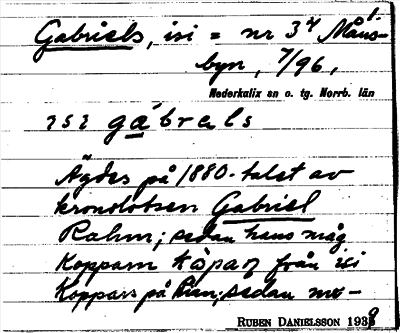 1.
Gabriels, isi = nr 3⁴ Måns-
byn, 7/96,
Nederkalix sn o. tg. Norrb. län
ɪsɪ gábrals
Ägdes på 1880-talet av
kronolotsen Gabriel
Rahm; sedan hans måg
Koppam från isi
Koppars på sedan mo-
RUBEN DANIELSSON 1938